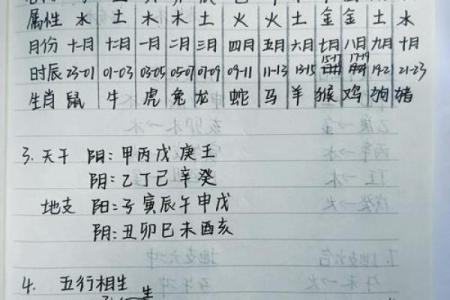 属性 水 土 木 木 土 火 火 土 金 金 土 水
月份 十一月 十二月 一月 二月 三月 四月 五月 六月 七月 八月 九月 十月
时辰 23-01 01-03 03-05 05-07 07-09 09-11 11-13 13-15 15-17 17-19 19-21 21-23
生肖 鼠 牛 虎 兔 龙 蛇 马 羊 猴 鸡 狗 猪
3. 天干 阴:甲丙戊庚王
阴:乙丁己辛癸
地支 阳:子寅辰午申戊
阴:丑卯巳未酉亥
4. 五行相生